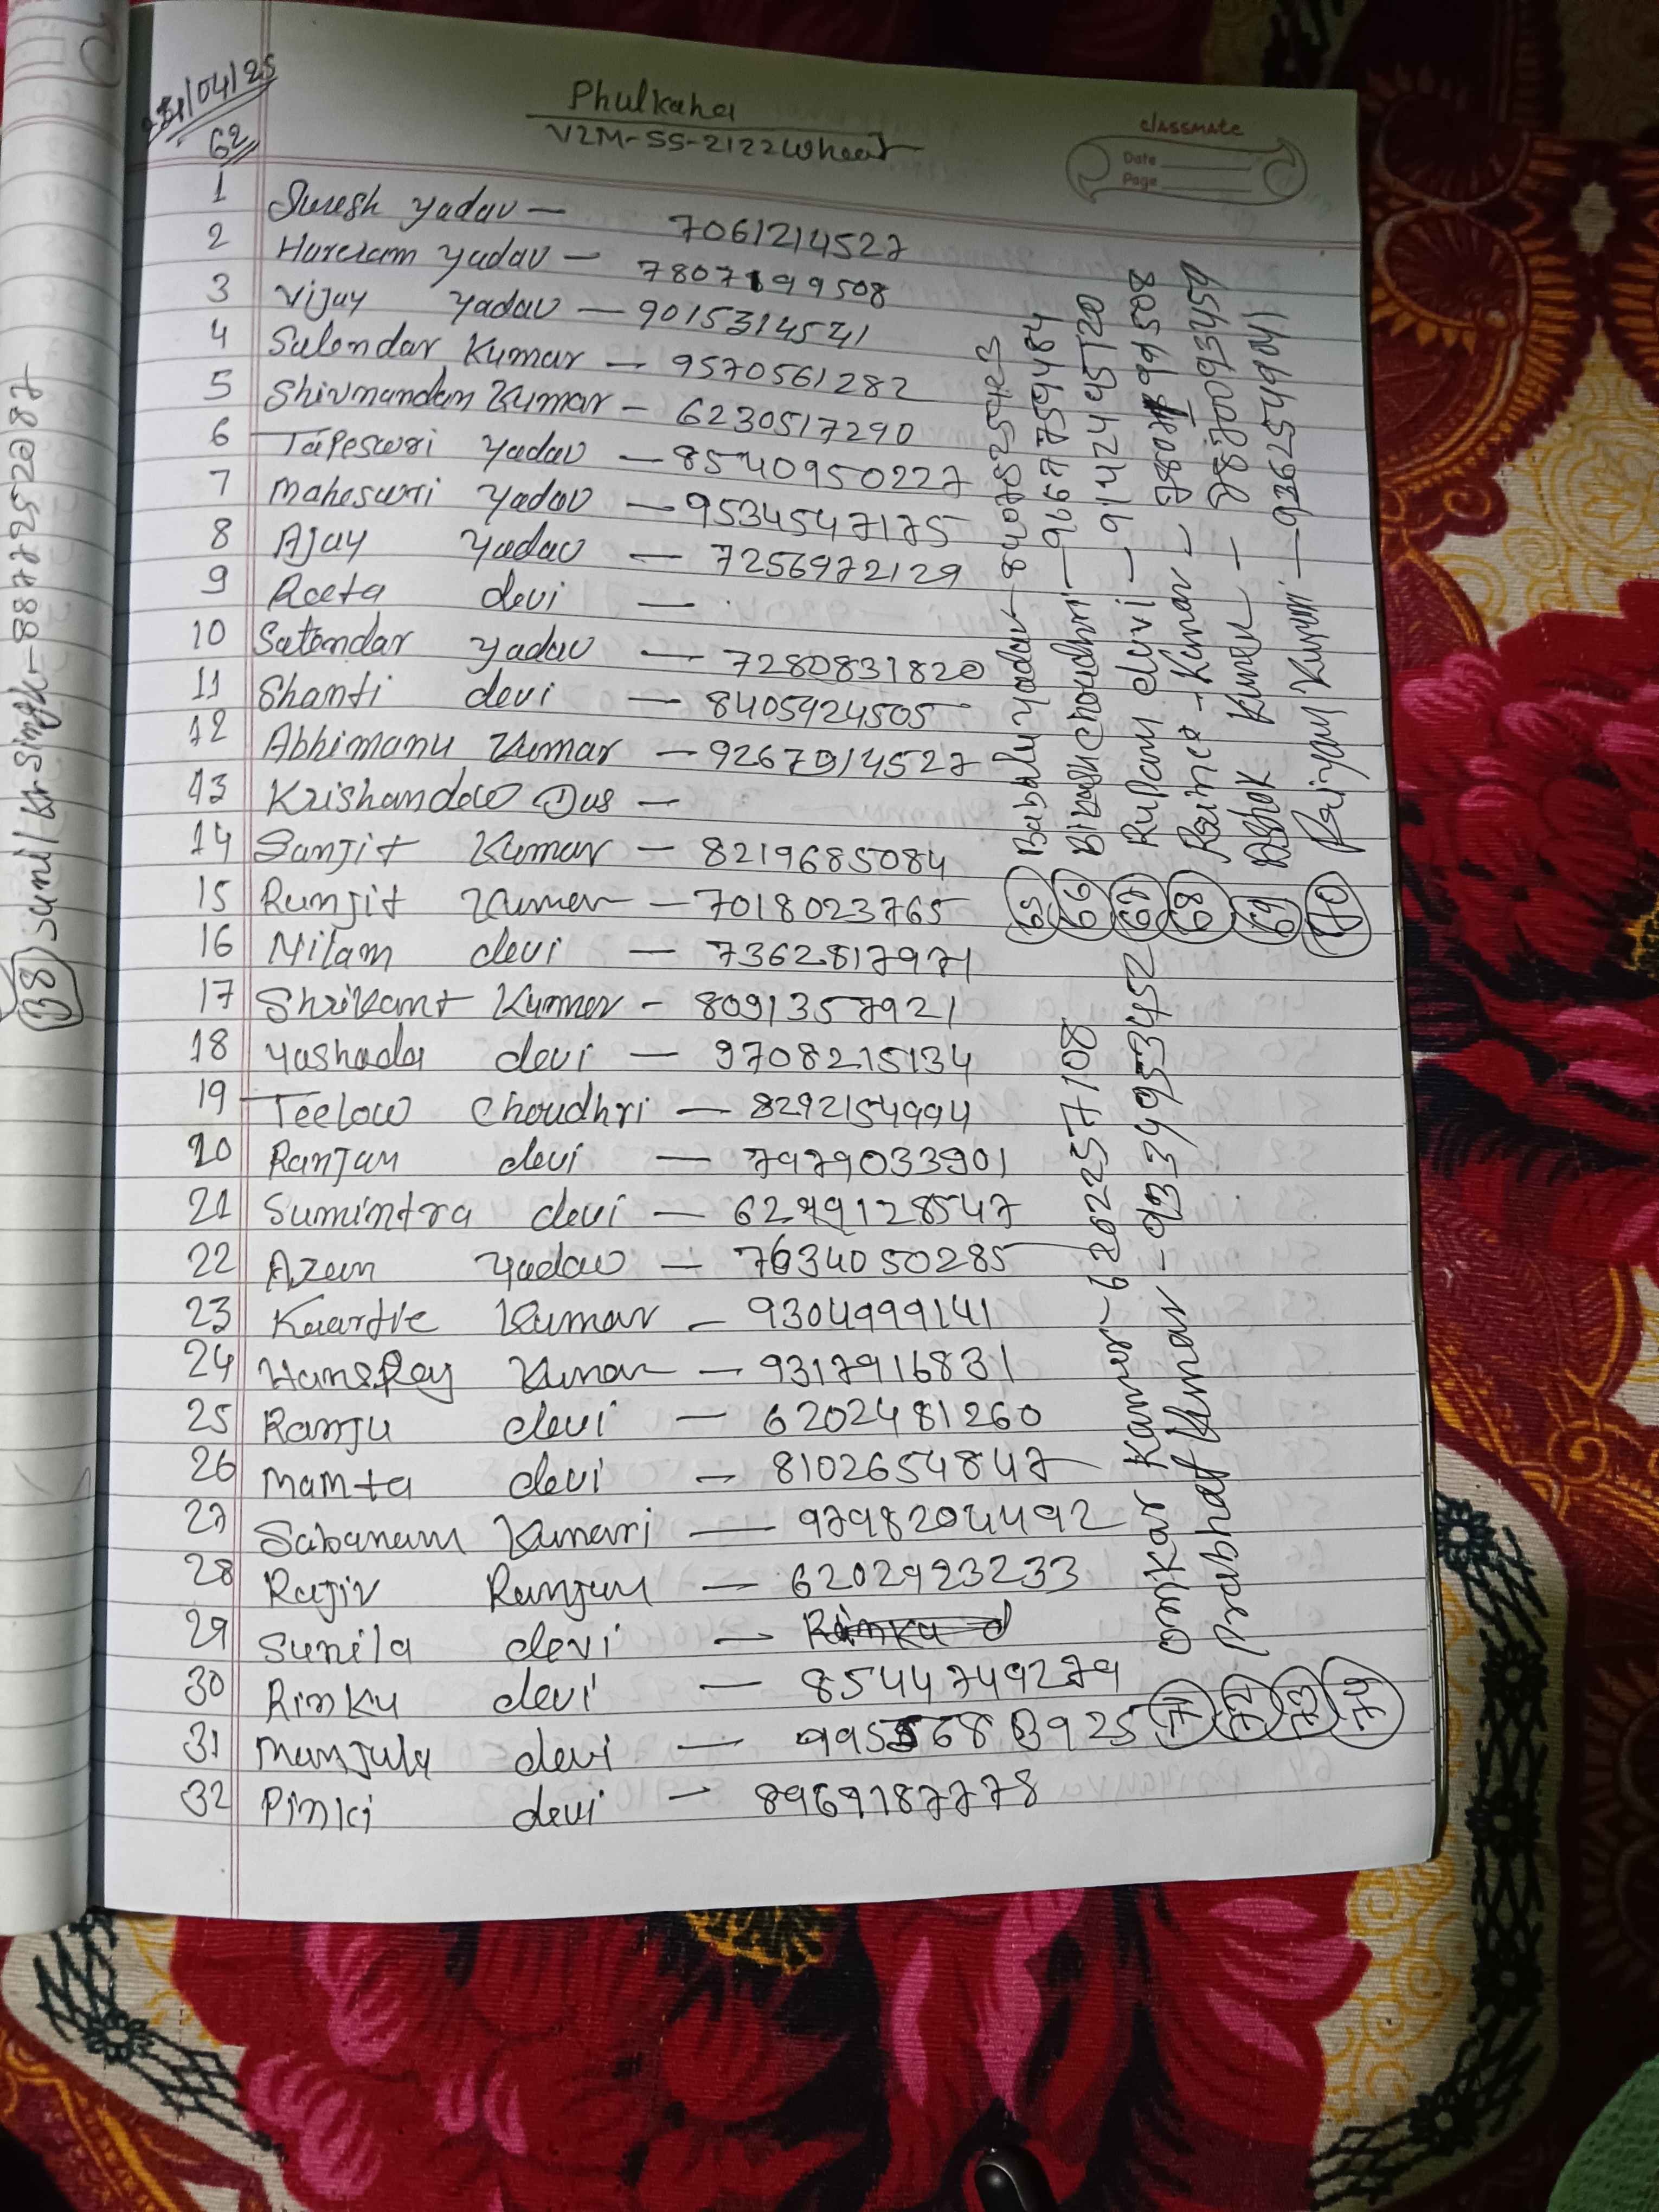 /04/25
62
Phulkaha
V2M-SS-2122 Wheat
classmate
Date
Page
1 Suresh Yadav — 7061214527
2 Hareram Yadav — 7807199508
3 Vijay Yadav — 9015314541
4 Salendar Kumar — 9570561282
5 Shivnandan Kumar — 6230517290
6 Tapeswri Yadav — 8540950227
7 Maheswri Yadav — 9534547175
8 Ajay Yadav — 7256972129
9 Reeta devi —
10 Satendar Yadav — 7280831820
11 Shanti devi — 8405924505
12 Abhimanu Kumar — 9267914527
13 Krishandew Das —
14 Sanjit Kumar — 8219685084
15 Ranjit Kumar — 7018023765
16 Nilam devi — 7362817971
17 Shrikant Kumar - 8091357921
18 Yashada devi — 9708215134
19 Teelow Choudhri — 8292154994
20 Ranjan devi — 7979033901
21 Sumintra devi — 6299128547
22 Azan Yadav — 7634050285
23 Kaartie Kumar — 9304999141
24 HansRaj Kumar — 9317916831
25 Ranju devi — 6202481260
26 Mamta devi — 8102654847
27 Sabanam Kumari — 9798204492
28 Rajiv Ranjan — 6202923233
29 Sunila devi — Rinku d
30 Rinku devi — 8544749279
31 Manjula devi — 9955683925
32 Pinki devi — 8969187778
65 Babalu Yadav — 840705255423
66 Bikash Choudhri — 9667759484
67 Rupam devi — 9142445720
68 Prince Kumar — 7807199508
69 Ashok Kumar — 7870093459
70 Priyam Kumari — 9262549041
71 Omkar Kamar — 6202257108
72 Prabhat Kumar — 9334953452
73
74
38 Sunil Kr Singh — 8877252087